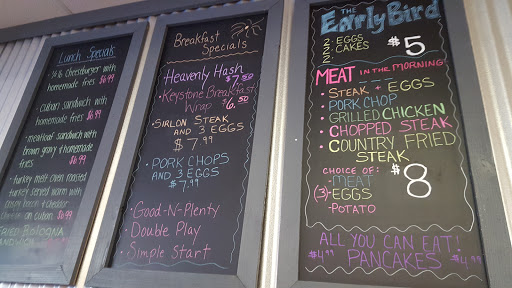 Lunch Specials
homemade fries $6.99
cuban sandwich with
homemade fries $6.99
meatloaf sandwich with
brown gravy + homemade
fries $6.99
turkey melt oven roasted
turkey served warm with
on cuban $6.99
Fried Bologna
Breakfast
Specials
Heavenly Hash
$7.50
Keystone Breakfast
Wrap $6.50
Sirlon Steak
and 3 eggs
$7.99
Pork Chops
and 3 eggs
$7.99
Good-N-Plenty
Double Play
Simple Start
The
Early Bird
2 Eggs
2 Cakes
2
$5
Meat in the morning!
Steak + Eggs
Pork Chop
Grilled Chicken
Chopped Steak
Country Fried
Steak
Choice of:
-Meat
(3)-Eggs
-Potato
$8
All you can eat!
$4.99 Pancakes $4.99